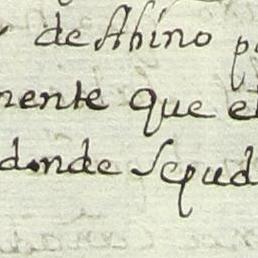 de Albino p
mente que el
donde se pud